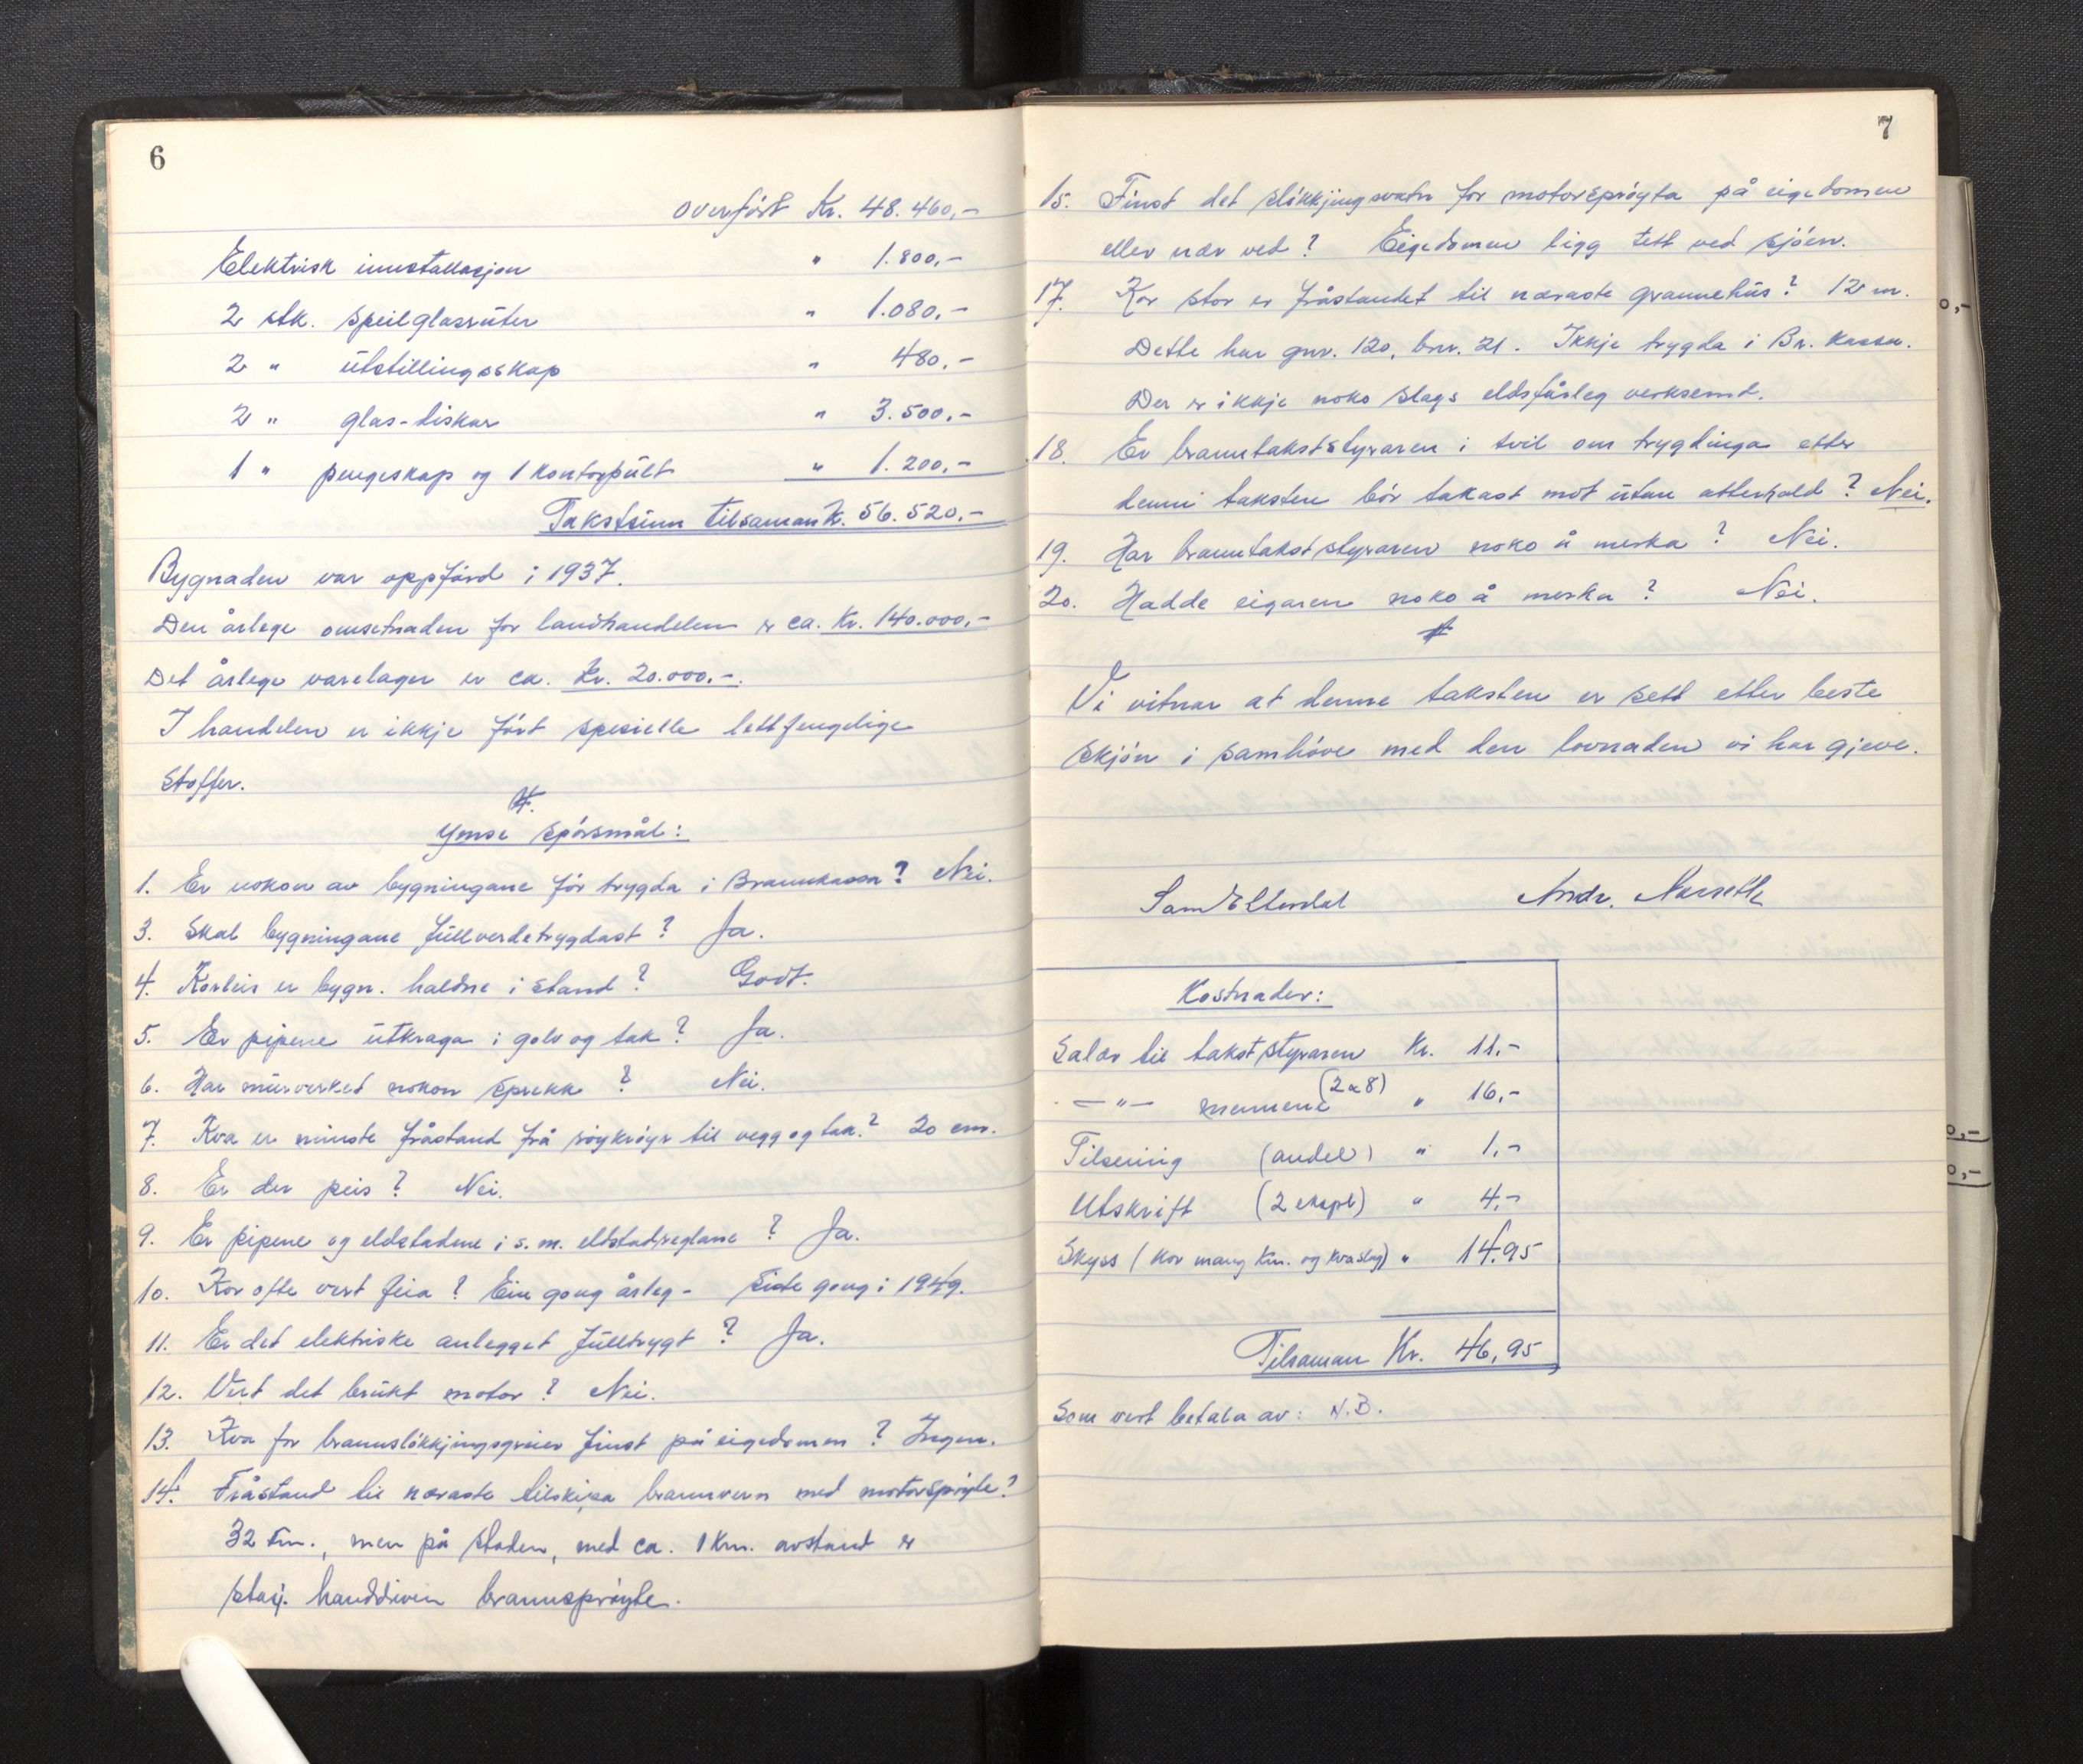 6
overført Kr. 48.460,-
Elektrisk innstallasjon " 1.800,-
2 stk. speilglasruter " 1.080,-
2 " utstillingsskap " 480,-
2 " glas-diskar " 3.500,-
1 " pengeskap og 1 kontorpult " 1.200,-
Takstsum tilsaman k. 56.520.-
Bygnaden var oppførd i 1937.
Den årlege omsetnaden for landhandelen er ca. Kr. 140.000,-
Det årlege varelager er ca. Kr. 20.000.-.
I handelen er ikkje ført spesielle lettfengelige
stoffer.
Ymse spørsmål:
1. Er nokon av bygningane før trygda i Brannkassa? Nei.
3. Skal bygningane fullverdetrygdast? Ja.
4. Korleis er bygn. haldne i stand? Godt.
5. Er pipene utkraga i golv og tak? Ja.
6. Har murverket nokon sprekk? Nei.
7. Kva er minste fråstand frå røykrøyr til vegg og tak? 20 cm.
8. Er der peis? Nei.
9. Er pipene og eldstadene i s.m. eldstadreglane? Ja.
10. Kor ofte vert feia? Ein gong årleg - Siste gong i 1949.
11. Er det elektriske anlegget fulltrygt? Ja.
12. Vert det brukt motor? Nei.
13. Kva for brannsløkkjingsgreier finst på eigedomen? Ingen.
14. Fråstand til næraste tilskipa brannvern med motorsprøyte?
32 km., men på staden, med ca. 1 km. avstand er
stasj. handdriven brannsprøyte.
7
15. Finst det sløkkjingsvatn for motorsprøyta på eigedomen
eller nær ved? Eigedomen ligg tett ved sjøen.
17. Kor stor er fråstandet til næraste grannehus? 12 m.
Dette har gnr. 120, bnr. 21. Ikkje trygda i Br. kassa.
Der er ikkje noko slags eldsfårleg verksemd.
18. Er branntakststyraren i tvil om trygdinga etter
denne taksten bør takast mot utan atterhald? Nei.
19. Har branntakststyraren noko å merka? Nei.
20. Hadde eigaren noko å merka? Nei.
Vi vitnar at denne taksten er sett etter beste
skjøn i samhøve med den lovnaden vi har gjeve.
Sam Eltvedal Andr. Norseth
Kostnader:
Salær til takststyraren Kr. 11,-
- " - mennene (2 a 8) " 16,-
Tilsening (andel) " 1,-
Utskrift (2 ekspl) " 4,-
Skyss (kor mang km. og kva slag) " 14.95
Tilsaman Kr. 46,95
Som vert betala av: N.B.
0,-
0,-
0,-